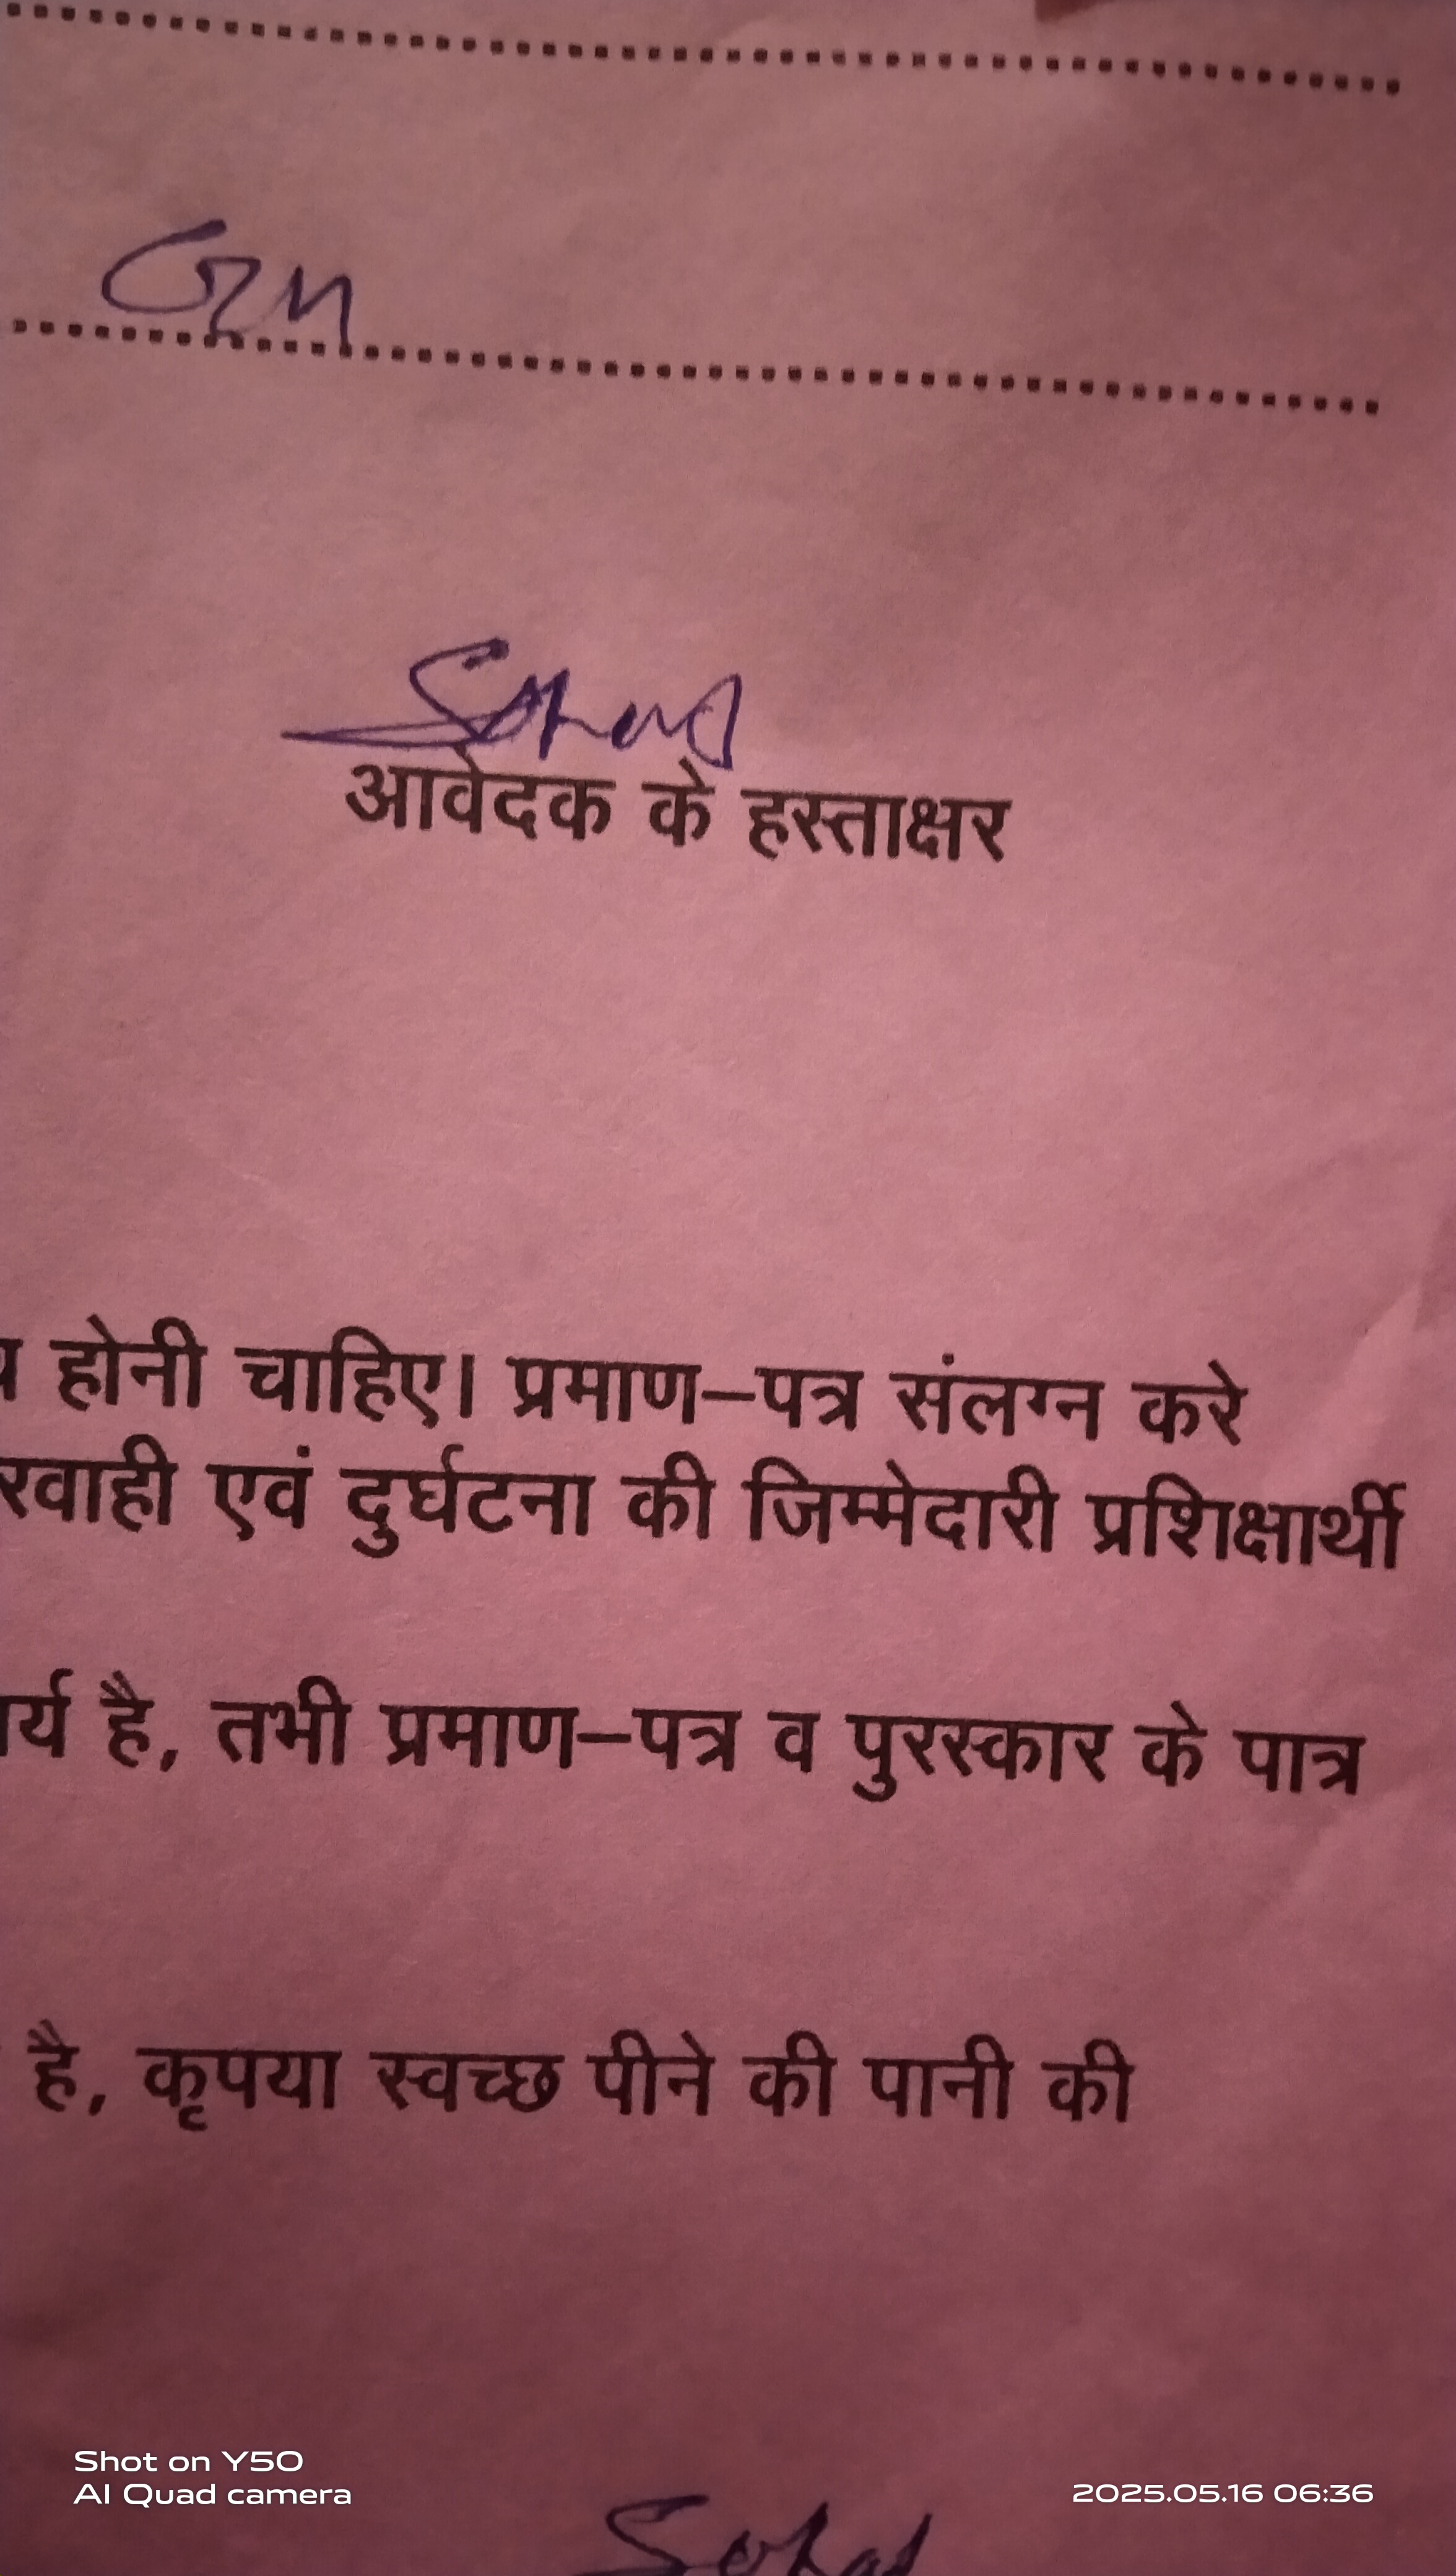 Gen
आवेदक के हस्ताक्षर
होनी चाहिए। प्रमाण–पत्र संलग्न करे
रवाही एवं दुर्घटना की जिम्मेदारी प्रशिक्षार्थी
र्य है, तभी प्रमाण–पत्र व पुरस्कार के पात्र
है, कृपया स्वच्छ पीने की पानी की
Shot on Y50
AI Quad camera
2025.05.16 06:36